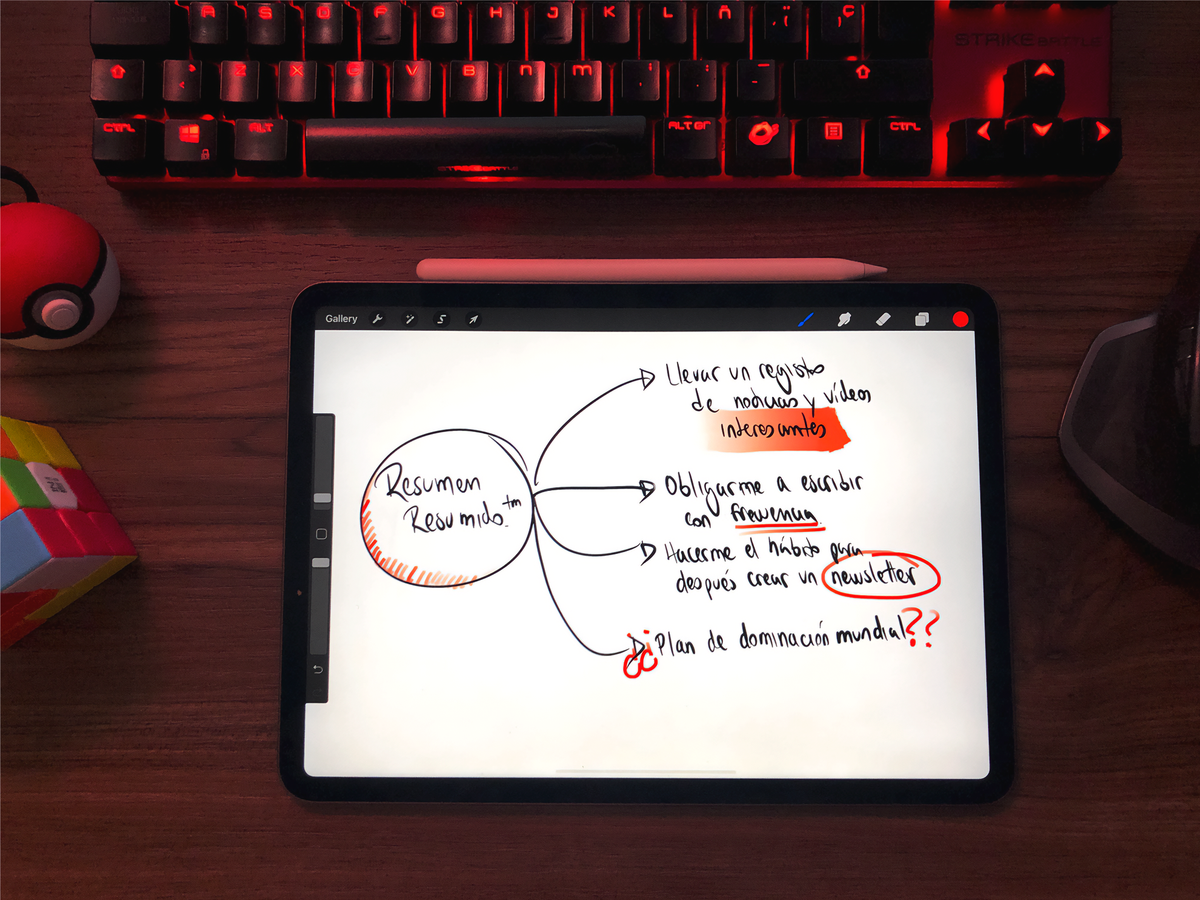 A S D F G H J K L Ñ
Z X C V B N M
CTRL ALT ALT GR CTRL
STRIKE BATTLE
Gallery
Resumen
Resumido.™
Llevar un registro
de noticias y vídeos
interesantes
Obligarme a escribir
con frecuencia.
Hacerme el hábito para
después crear un newsletter
¿¿Plan de dominación mundial??